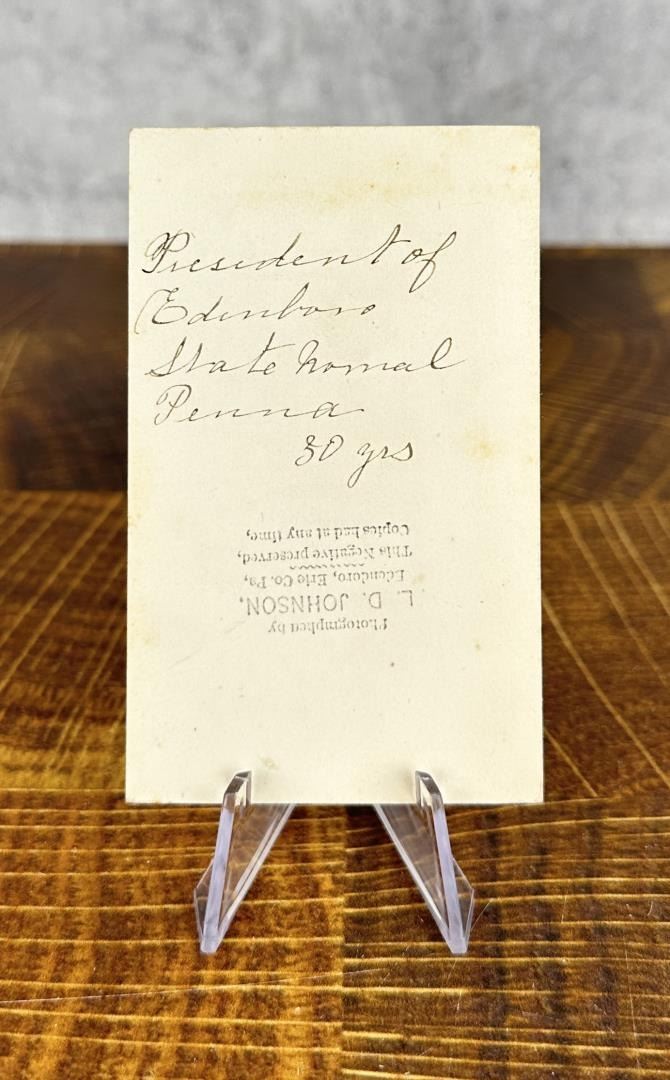 President of
Edinboro
State Nomal
Penna
30 yrs
Photographed by
L. D. JOHNSON,
Edenboro, Erie Co. Pa,
This Negative preserved,
Copies had at any time,